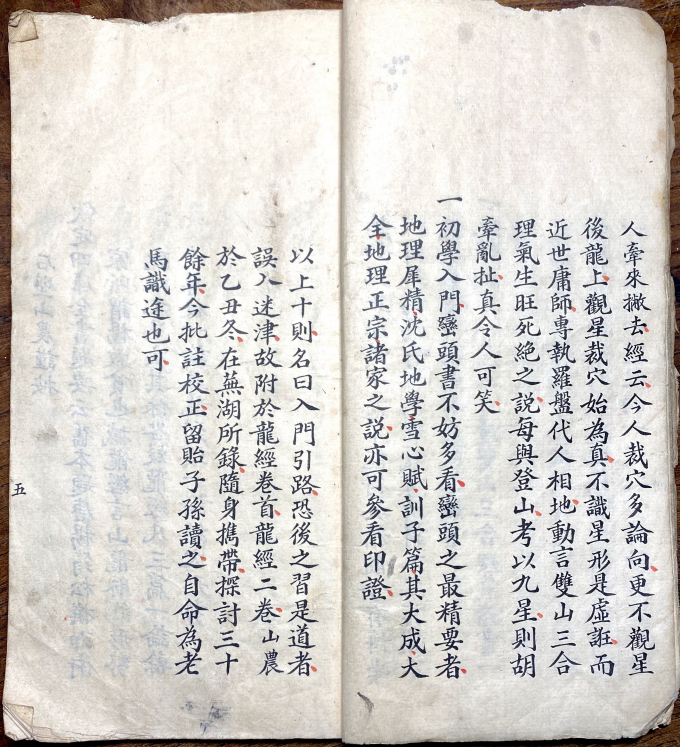 人牽來撇去經云今人裁穴多論向更不觀星
後龍上觀星裁穴始為真不識星形是虛誑而
近世庸師專執羅盤代人相地動言雙山三合
理氣生旺死絕之說每與登山考以九星則胡
牽亂扯真令人可笑
一初學入門巒頭書不妨多看巒頭之最精要者
地理犀精沈氏地學雪心賦訓子篇其大成大
全地理正宗諸家之說亦可參看印證
以上十則名曰入門引路恐後之習是道者
誤入迷津故附於龍經卷首龍經二卷山農
於乙丑冬在蕪湖所錄隨身攜帶探討三十
餘年今批註校正留貽子孫讀之自命為老
馬識途也可
五